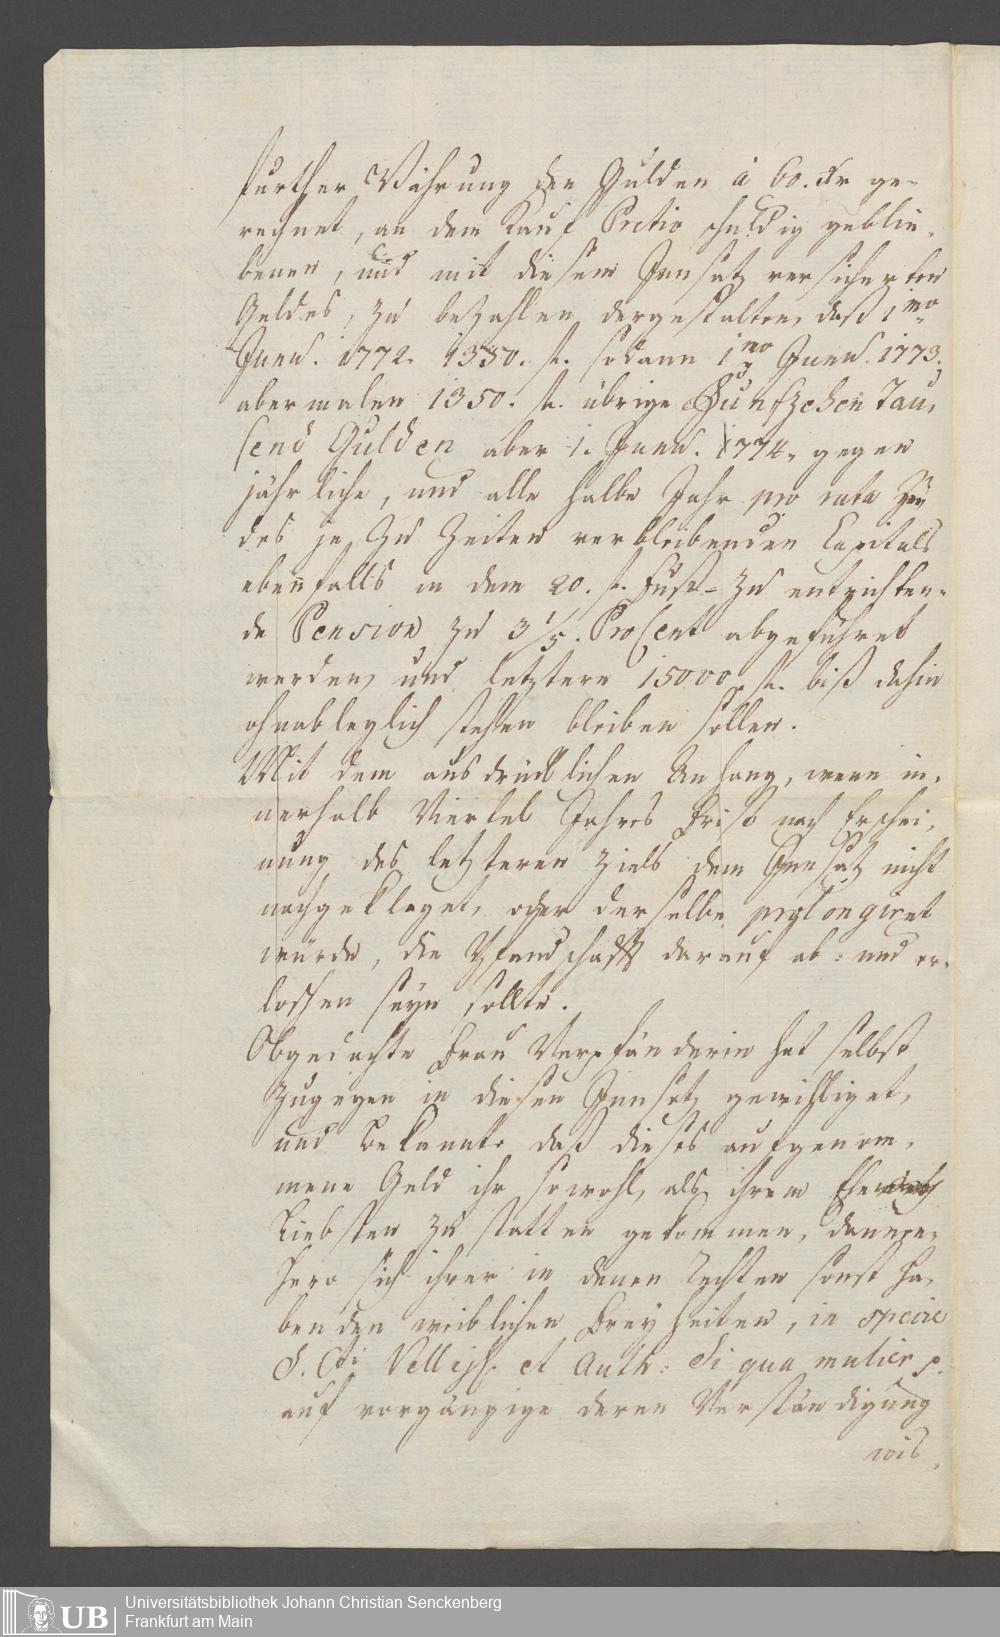 further Währung den Gulden à 60. Xr ge-
rechnet, an dem Kauf Pretio schuldig geblie-
benen, und mit diesem Innsatz versicherten
Geldes, zu bezahlen, dergestalten, daß 1mo
Juny. 1772. 1350. f. sodann 1mo Juny. 1773.
abermalen 1350. f. übrige Funfzehen Tau-
send Gulden aber 1. Juny. 1774. gegen
jährliche, und alle halbe Jahr pro rata
des je zu Zeiten verbleibenden Capitals
ebenfalls in dem 20. f. Fuß- zu entrichten-
de Pension zu 3 1/5. ProCent abgeführet
werden, und letztere 15000. f. biß dahin
ohnableglich stehen bleiben sollen.
Mit dem ausdrücklichen Anhang, wenn in-
nerhalb Viertel Jahres Frist nach Erschei-
nung des letzteren Ziels dem Innsatz nicht
nachgeklaget, oder derselbe prolongiret
würde, die Pfandschafft darauf ab- und er-
loschen seyn sollte.
Obgedachte Frau Verpfänderin hat selbst
zugegen in diesen Innsatz gewilliget,
und bekannt, daß dieses aufgenom-
mene Geld ihr sowohl, als ihrem Ehe
Liebsten zu statten gekommen, dannen-
hero sich ihrer in denen Rechten sonst ha-
benden weiblichen Freyheiten, in specie
S. Cti Vellejh. et Auth: Si qua mulier p.
auf vorgängige deren Verständigung
wis-
UB
Universitätsbibliothek Johann Christian Senckenberg
Frankfurt am Main